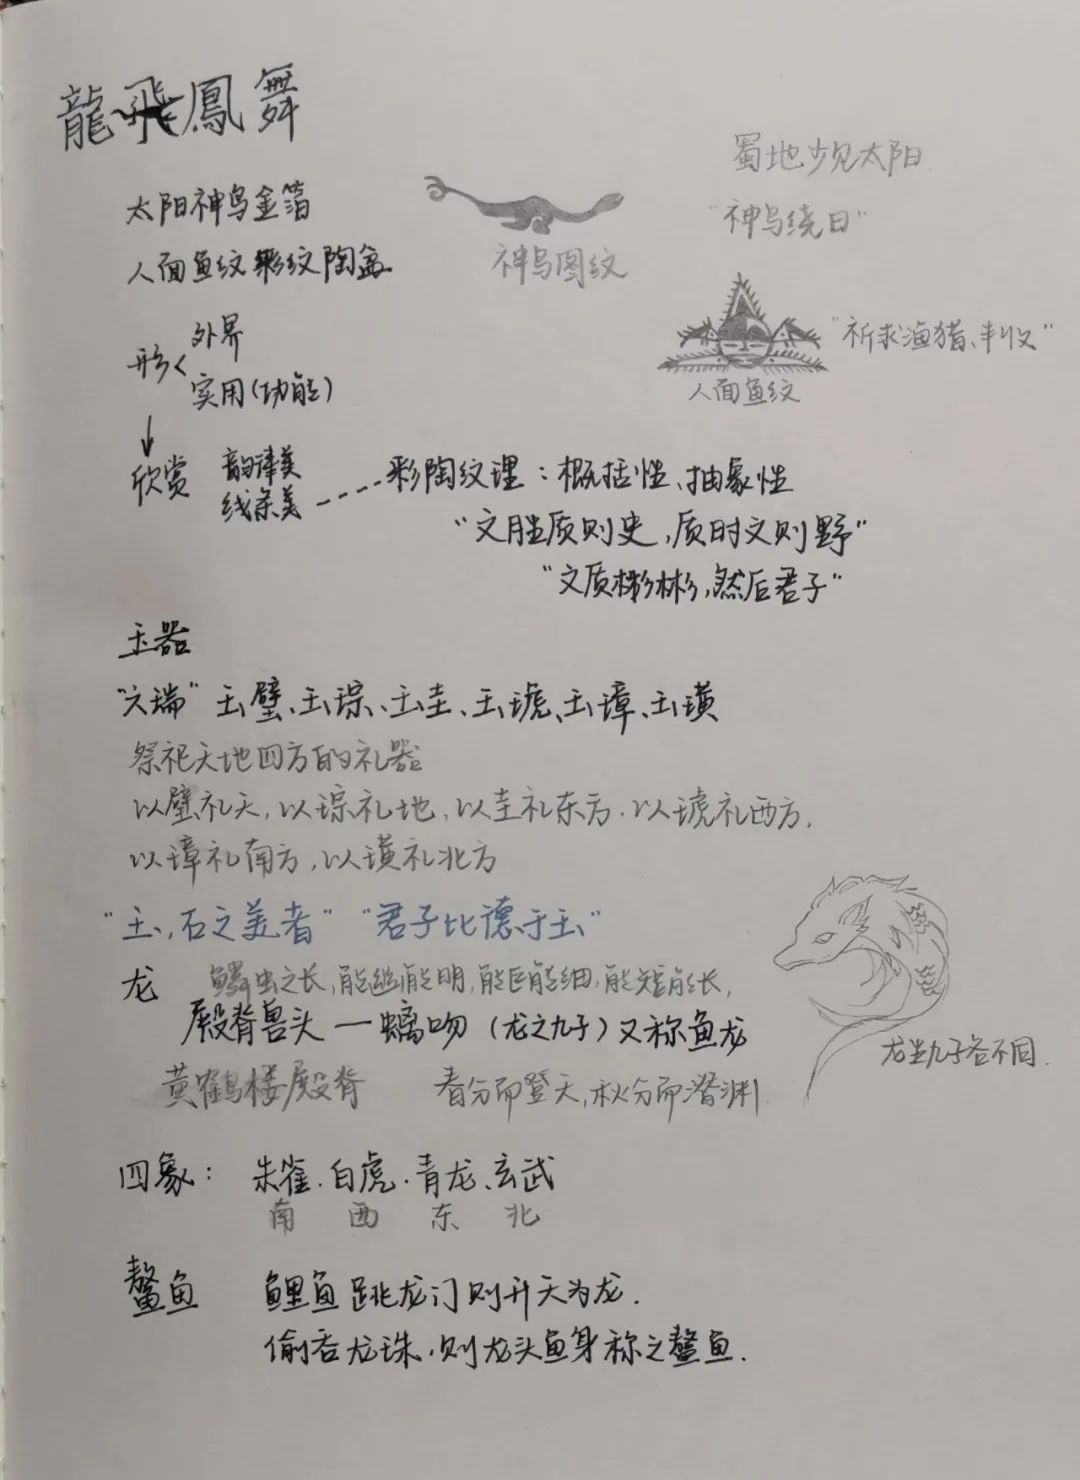 龍飛鳳舞
蜀地少见太阳
太阳神鸟金箔
"神鸟绕日"
人面鱼纹彩纹陶盆
神鸟图纹
形<外界
实用(功能)
"祈求渔猎、丰收"
人面鱼纹
↓
欣赏 韵律美
线条美 ----彩陶纹理：概括性、抽象性
"文胜质则史,质时文则野"
"文质彬彬,然后君子"
玉器
"六瑞" 玉璧、玉琮、玉圭、玉琥、玉璋、玉璜
祭祀天地四方的礼器
以璧礼天,以琮礼地,以圭礼东方.以琥礼西方,
以璋礼南方,以璜礼北方
"玉,石之美者" "君子比德于玉"
龙 鳞虫之长,能幽能明,能巨能细,能短能长,
殿脊兽头 — 螭吻 (龙之九子)又称鱼龙
龙生九子各不同.
黄鹤楼殿脊 春分而登天,秋分而潜渊.
四象： 朱雀.白虎.青龙、玄武
南 西 东 北
鳌鱼 鲤鱼跳龙门则升天为龙.
偷吞龙珠,则龙头鱼身称之鳌鱼.